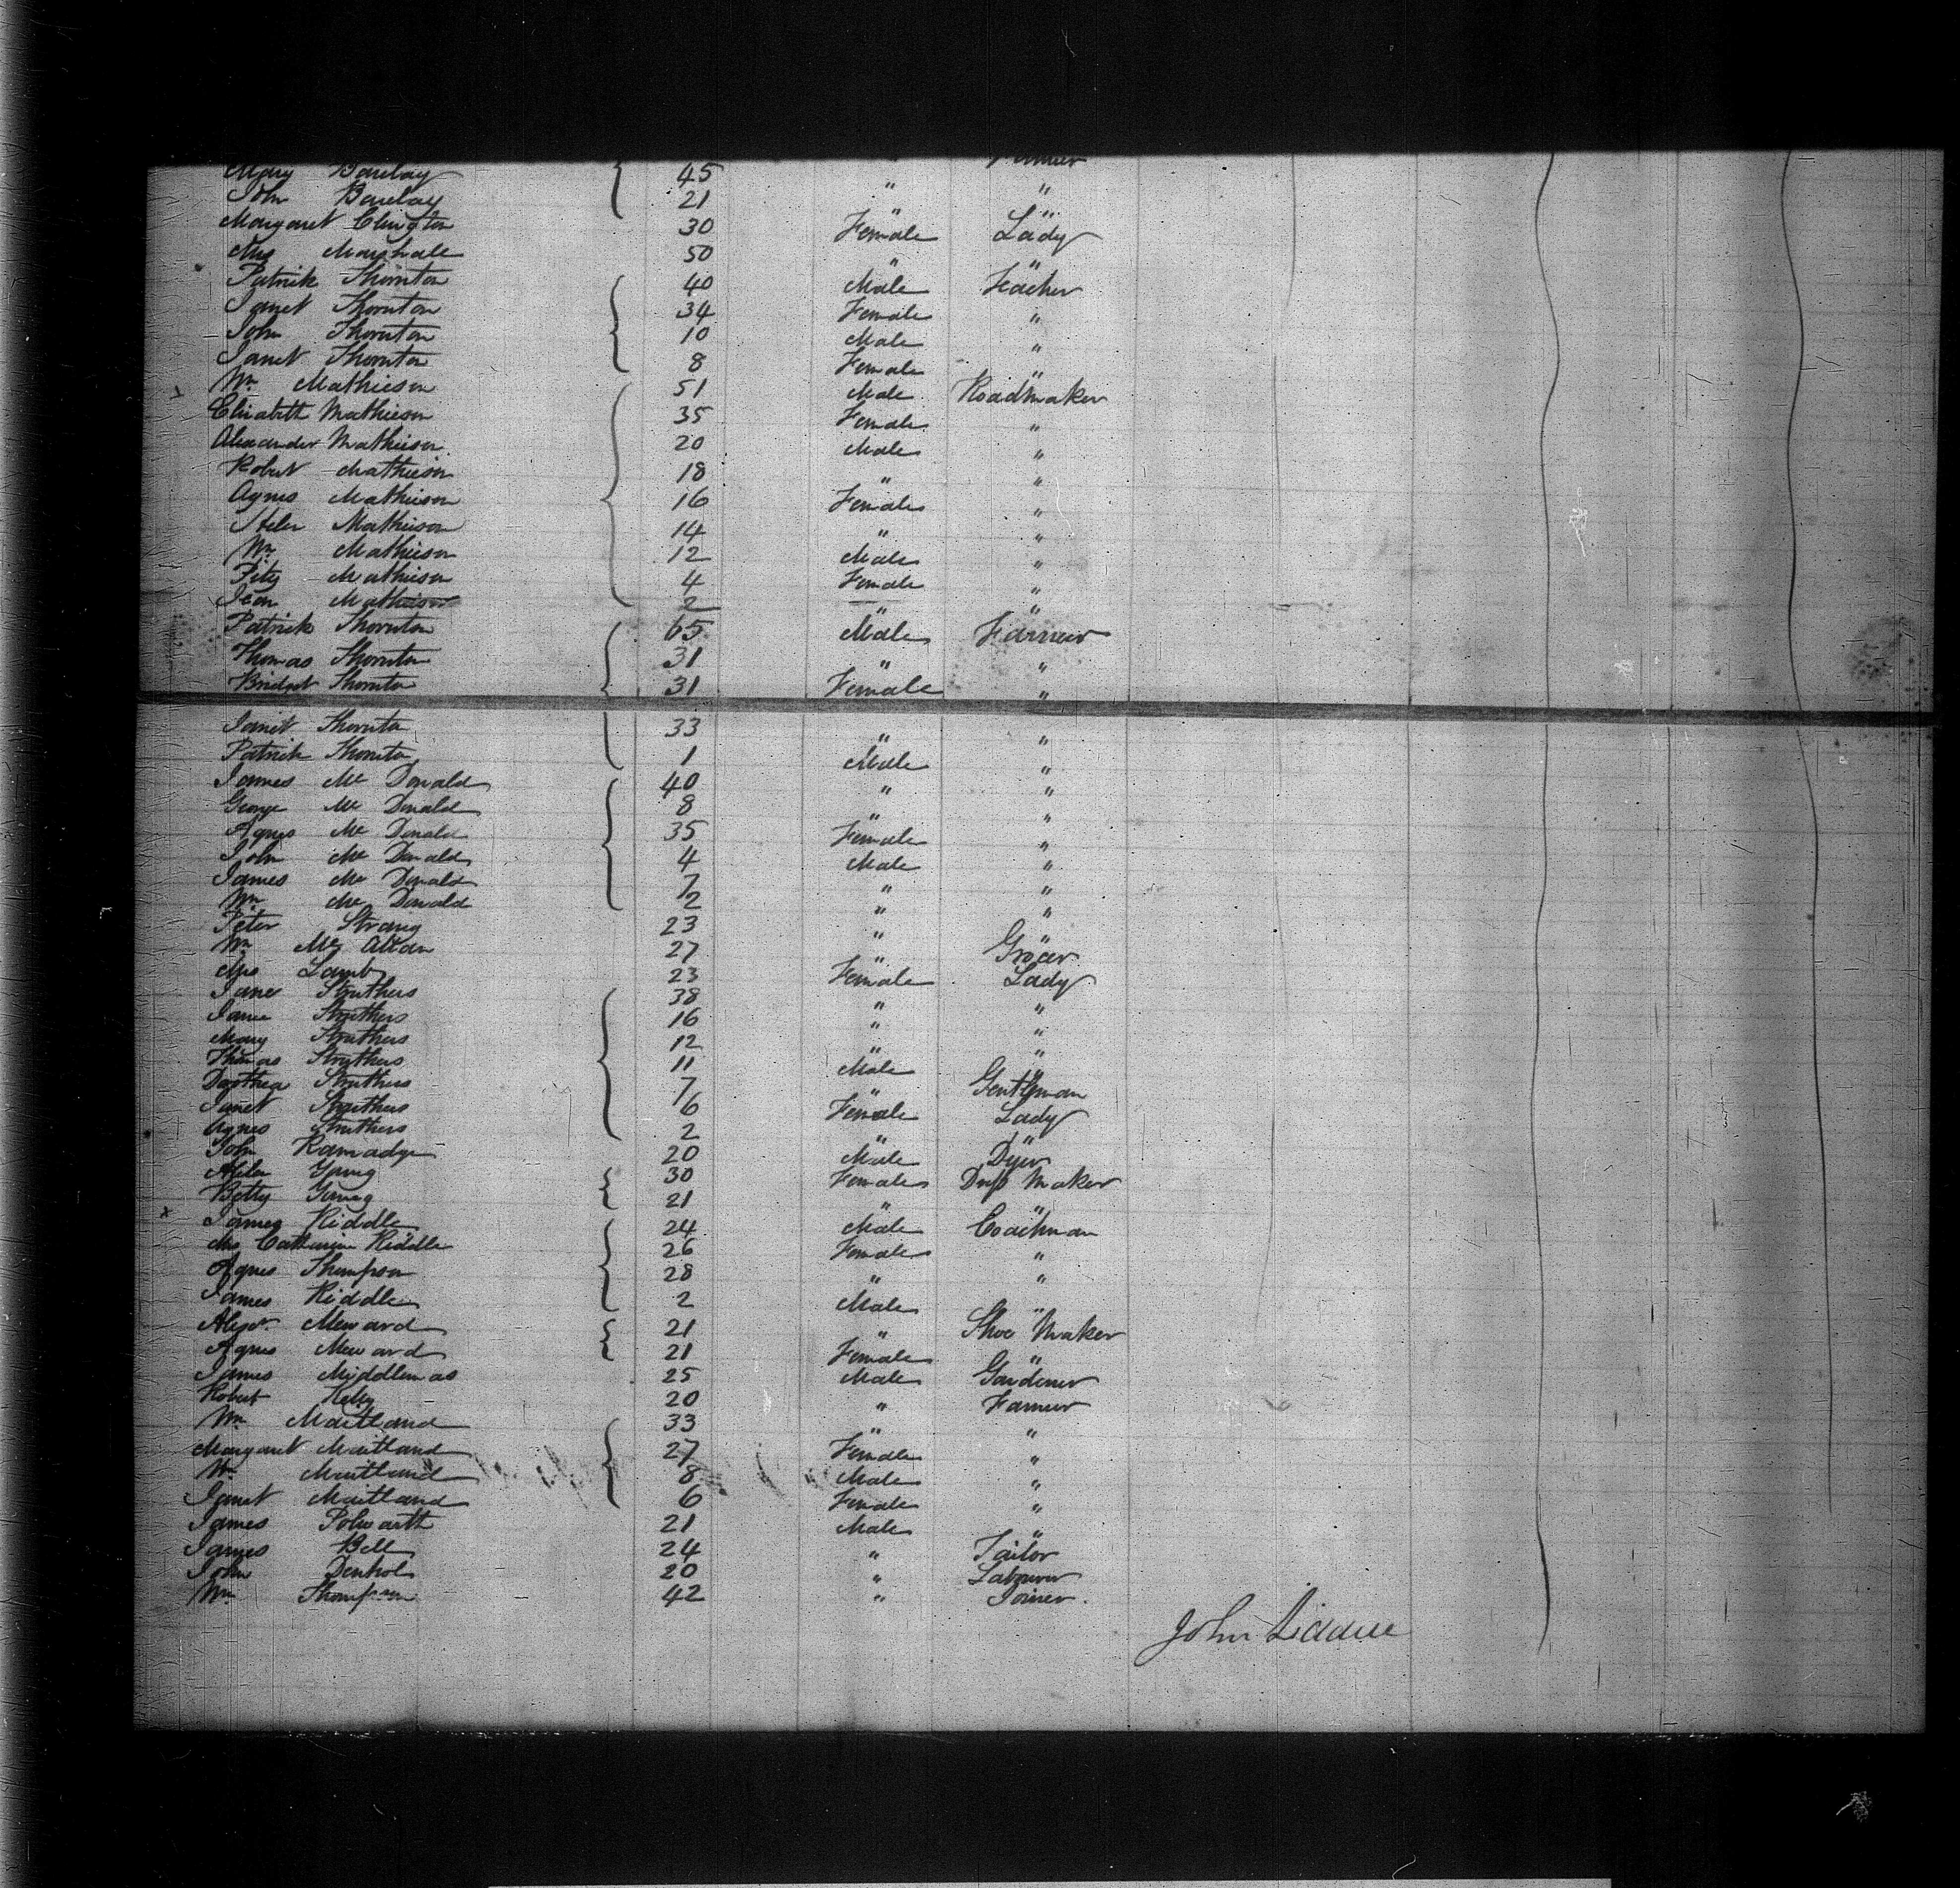 Mary Barclay 45 " Farmer
John Barclay 21 " "
Margaret Clington 30 Female Lady
Mrs Marshale 50 " "
Patrick Thornton 40 Male
Janet Thornton 34 Female "
John Thornton 10 Male "
Janet Thornton 8 Female "
Wm Mathieson 51 Male Roadmaker
Elizabeth Mathieson 35 Female "
Alexander Mathieson 20 Male "
Robert Mathieson 18 " "
Agnes Mathieson 16 Female "
Helen Mathieson 14 " "
Wm Mathieson 12 Male "
Mathieson 4 Female "
Jean Mathieson 2 " "
Patrick Thornton 65 Male Farmer
Thomas Thornton 31 " "
Bridget Thornton 31 Female "
Janet Thornton 33 " "
Patrick Thornton 1 Male "
James Mc Donald 40 " "
George Mc Donald 8 " "
Agnes Mc Donald 35 Female "
John Mc Donald 4 Male "
James Mc Donald 7 " "
Wm Mc Donald 2 " "
Peter Strang 23 " "
Wm Mc Allan 27 " Grocer
Mrs Lamb 23 Female Lady
Jane Struthers 38 " "
Jane Struthers 16 " "
Mary Struthers 12 " "
Thomas Struthers 11 Male Gentleman
Dorothea Struthers 7 "
Janet Struthers 6 Female Lady
Agnes Struthers 2 " "
John Ramadge 20 Male Dyer
Helen Young 30 Female Dress Maker
Betty Young 21 " "
James Riddle 24 Male Coachman
Mrs Catherine Riddle 26 Female "
Agnes Thompson 28 " "
James Riddle 2 Male "
Alexr. Meward 21 " Shoe Maker
Agnes Meward 21 Female "
James Middlemas 25 Male Gardener
Robert 20 " Farmer
Wm Maitland 33 " "
Margaret Maitland 27 Female "
Wm Maitland 8 Male "
Janet Maitland 6 Female "
James Polwarth 21 Male "
James Bell 24 " Tailor
John Denhol 20 " Labourer
Wm Thompson 42 " Joiner.
John Liddle